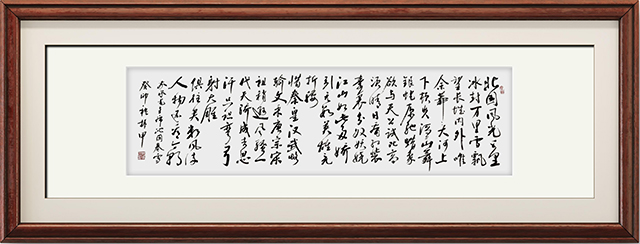 北国风光千里
冰封万里雪飘
望长城内外唯
余莽莽大河上
下顿失滔滔山舞
银蛇原驰蜡象
欲与天公试比高
须晴日看红装
素裹分外妖娆
江山如此多娇
引无数英雄竞
折腰
惜秦皇汉武略
输文采唐宗宋
祖稍逊风骚一
代天骄成吉思
汗只识弯弓
射大雕
俱往矣数风流
人物还看今朝
毛主席沁园春雪
癸卯